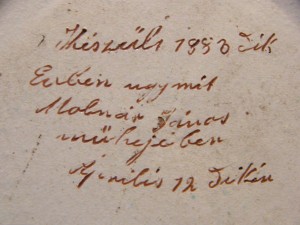 Készült 1883 dik
Évben ugymit
Molnár János
mühejében
Április 12 dikén